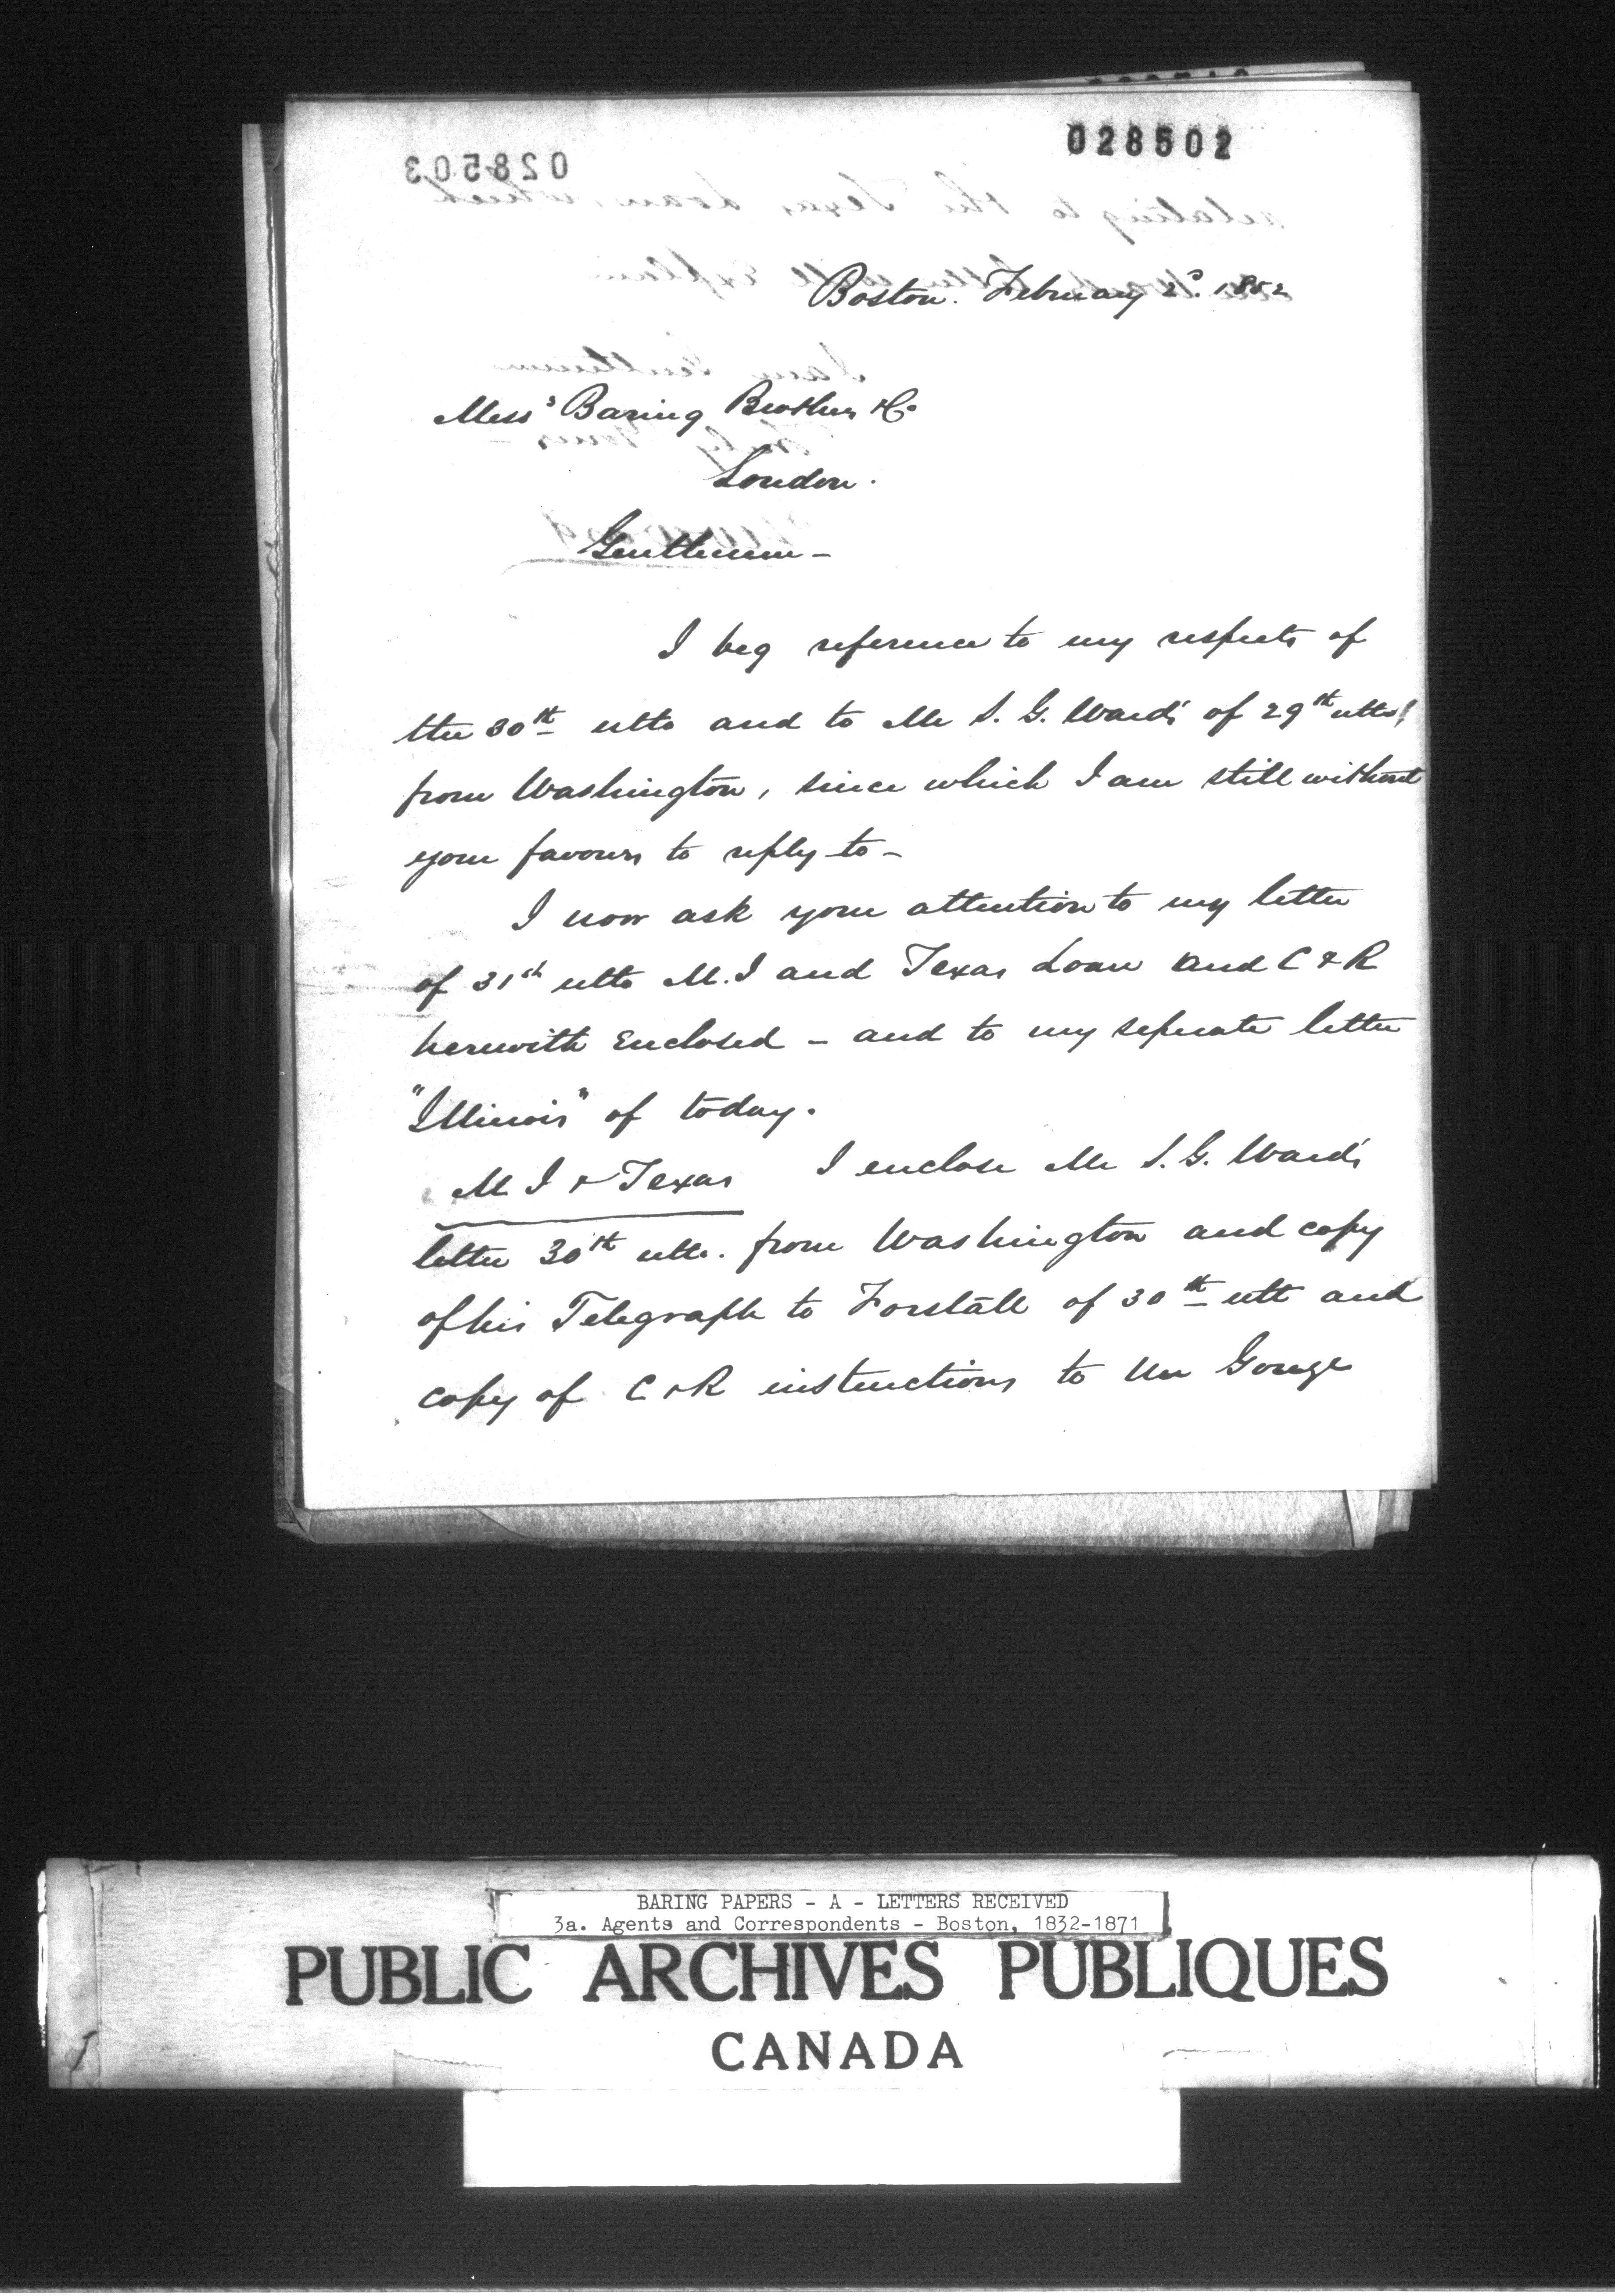 028502
028503
Boston. February 2d. 1852
Messrs Baring Brothers & Co
London.
Gentlemen -
I beg reference to my respects of
the 30th ulto and to Mr S. G. Ward's of 29th ulto
from Washington, since which I am still without
your favours to reply to -
I now ask your attention to my letter
of 31st ulto M. I and Texas Loan and C & R
herewith Enclosed - and to my seperate letter
"Illinois" of today.
M I & Texas I enclose Mr S. G. Ward's
letter 30th ulto. from Washington and copy
of his Telegraph to Forstall of 30th ult and
copy of C & R instructions to Mr Gouge
BARING PAPERS - A - LETTERS RECEIVED
3a. Agents and Correspondents - Boston, 1832-1871
PUBLIC ARCHIVES PUBLIQUES
CANADA